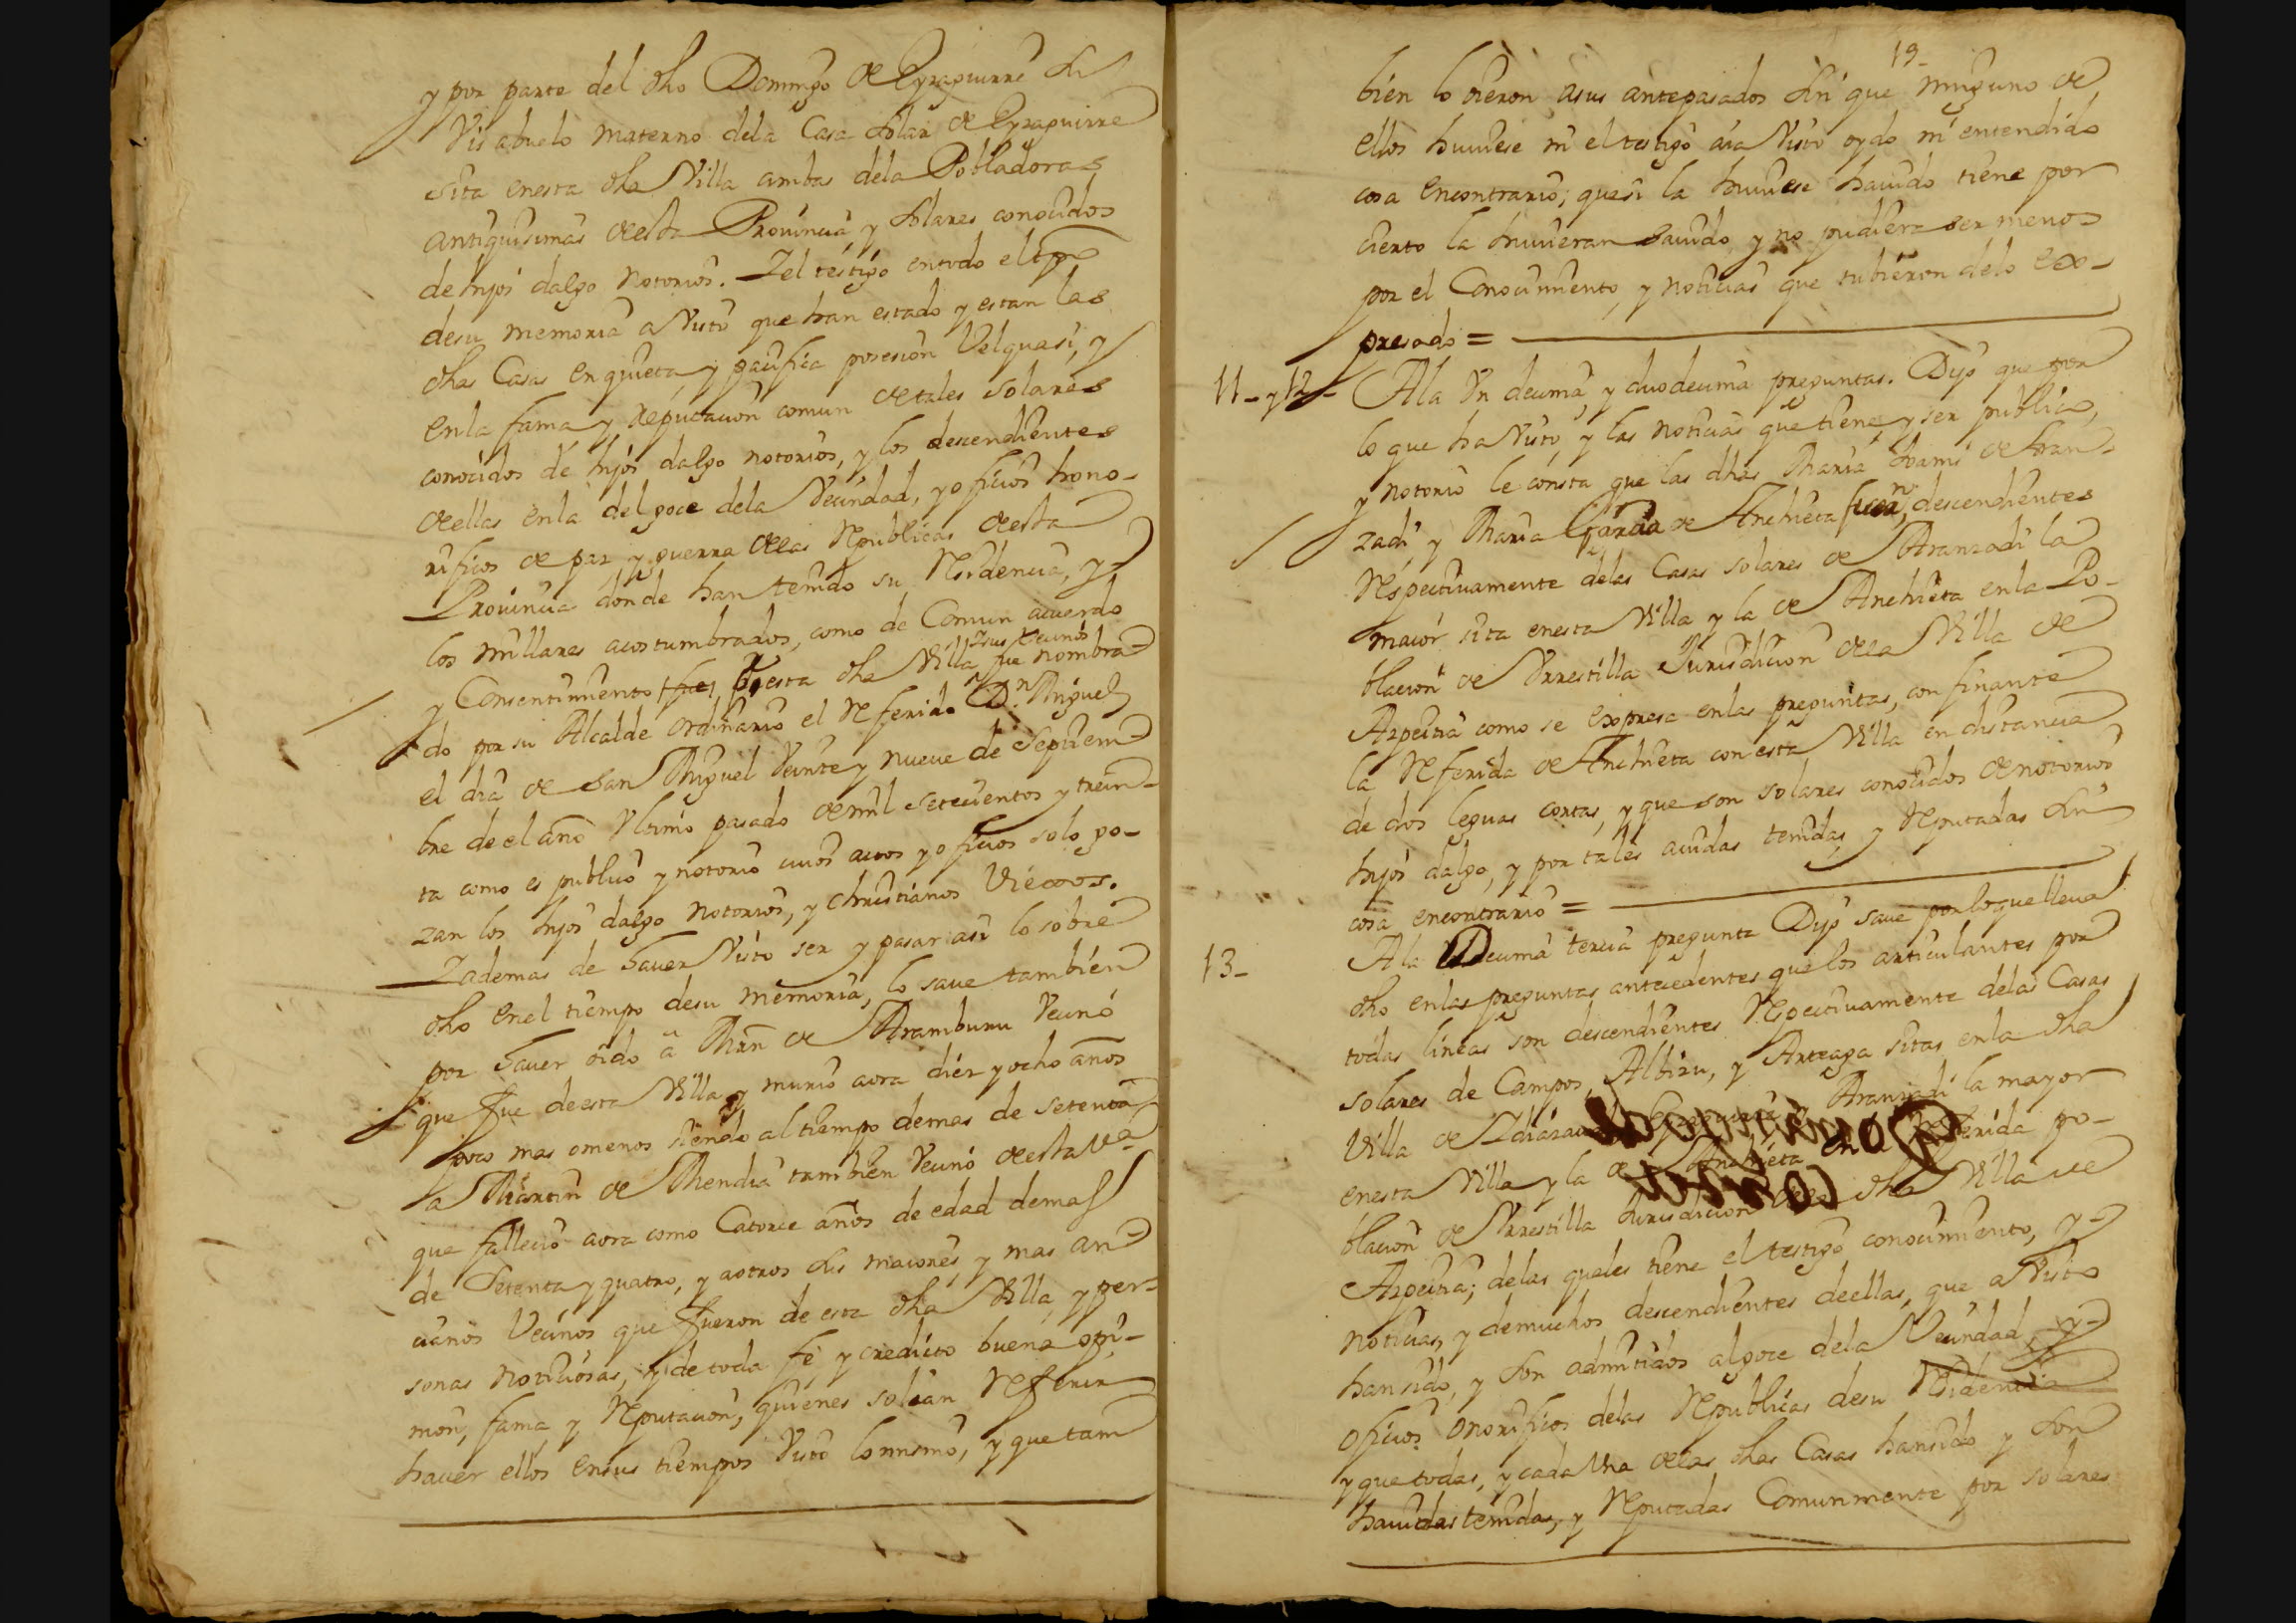 y por parte del dho Domingo de Eyzaguirre su
Visabuelo materno dela Casa solar de Eyzaguirre
sita enesta dha Villa ambas dela Pobladoras
antiquisimas desta Prouincia y solares conocidos
de hijos dalgo notorios. Y el testigo entodo el tpo
desu memoria a visto que han estado y estan las
dhas Casas en quieta y pacifica posesion Velquasi, y
enla fama y reputacion comun de tales solares
conocidos de hijos dalgo notorios, y los descendientes
de ellas enla del goce dela Vecindad, y oficios hono-
rificos de paz y guerra de las Republicas desta
Prouincia donde han tenido su Residencia, y
los millares acostumbrados, como de Comun acuerdo
y Consentimiento desta dha Villa y sus vecinos fue nombra
do por su Alcalde ordinario el referido Dn. Miguel
el dia de san Miguel Veinte y nueue de Septiem
bre de el año Vltimo pasado de mil setecientos y trein-
ta como es publico y notorio cuios actos y oficios solo go-
zan los hijos dalgo notorios, y christianos Viexos.
Y ademas de hauer Visto ser y pasar asi lo sobre
dho enel tiempo desu memoria, lo saue tambien
por hauer oido â Mrn de Aramburu Vecino
que fue de esta Villa y murio aora diez y ocho años
poco mas omenos siendo al tiempo demas de setenta
a Martin de Mendia tambien Vecino de esta Va
que fallecio aora como Catorce años de edad demas
de setenta y quatro, y aotros sus maiores y mas an
cianos Vecinos que fueron de esta dha Villa, y per-
sonas noticiosas, y de toda fe y credito buena opi-
nion, fama y Reputacion, quienes solian Referir
hauer ellos ensus tiempos Visto lo mismo, y que tam
19-
bien lo oieron asus antepasados sin que ninguno de
ellos huuiese ni el testigo aia Visto oydo ni entendido
cosa encontrario; que si la huuiese hauido tiene por
cierto la huuieran sauido y no pudiera ser menos
por el Conocimiento y noticias que tubieron delo ex-
presado =
11- y 12- Ala Vn decima y duodecima preguntas. Dijo que por
lo que ha Visto, y las noticias que tiene, y ser publico,
y notorio le consta que las dhas Maria Joanis de Aran-
zadi y Maria Garcia de Anchieta fueron descendientes
Respectiuamente delas Casas solares de Aranzadi la
maior sita enesta Villa y la de Anchieta enla Po-
blacion de Vrrestilla Jurisdicion dela Villa de
Azpeitia como se expresa enlas preguntas, confinante
la Referida de Anchieta con esta Villa en distancia
de dos leguas cortas, y que son solares conocidos de notorios
hijos dalgo, y por tales auidas tenidas, y Reputadas sin
cosa encontrario =
13- Ala Decima tercia pregunta Dijo saue por loque lleua
dho enlas preguntas antecedentes que los articulantes por
todas lineas son descendientes Respectiuamente delas Casas
solares de Campos, Albizu, y Arteaga sitas enla dha
Villa de Aranzadi la mayor
enesta Villa y la de Anchieta enla Referida po-
blacion de Vrrestilla Jurisdicion dela dha Villa de
Azpeitia; delas quales tiene el testigo conocimiento, y
noticias, y demuchos descendientes deellas, que a Visto
han sido, y son admitidos al goce dela Vecindad, y
oficios onorificos delas Republicas desu Residencia
y que todas, y cada Vna delas dhas Casas han sido y son
hauidas tenidas, y Reputadas Comunmente por solares